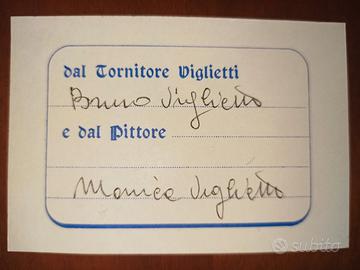 dal Tornitore Viglietti
Bruno Viglietti
e dal Pittore
Monica Viglietti
subito